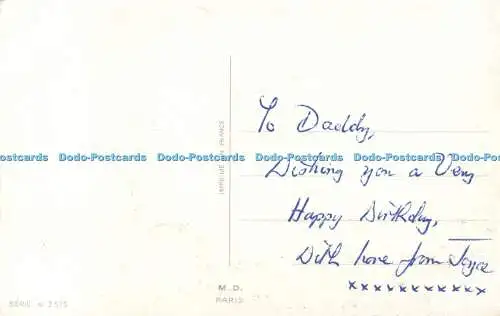 To Daddy,
Dodo-Postcards Dodo-Postcards Dodo-Postcards Dodo-Postcards Dodo-Postcards
Wishing you a Very
Happy Birthday,
With love from Joyce
xxxxxxxxxxx
IMPRIMÉ EN FRANCE
M.D.
PARIS
SÉRIE N